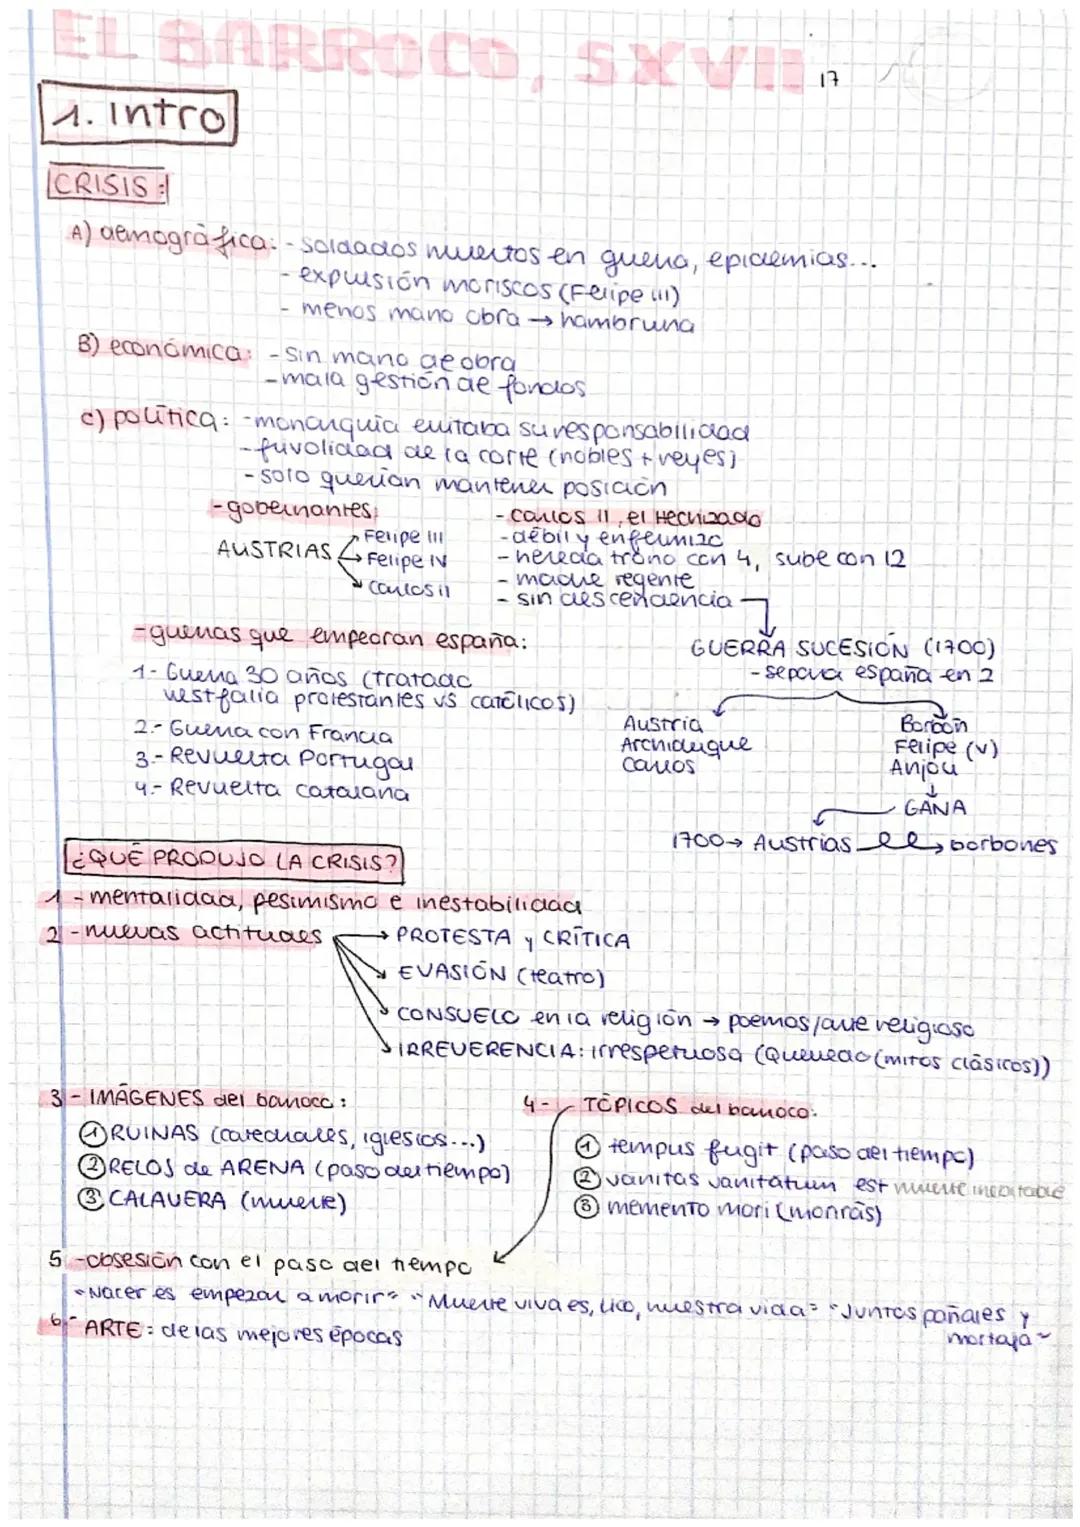 EL BARROCO, SXVII
17
1. Intro
CRISIS:
A) demográfica: - soldados muertos en guerra, epidemias...
- expulsión moriscos (Felipe III)
- menos mano obra → hambruna
B) económica: - sin mano de obra
- mala gestión de fondos
C) política: - monarquía evitaba su responsabilidad
- frivolidad de la corte (nobles + reyes)
- solo querían mantener posición
- gobernantes:
AUSTRIAS
Felipe III
Felipe IV
Carlos II
- Carlos II, el Hechizado
- débil y enfermizo
- hereda trono con 4, sube con 12
- madre regente
- sin descendencia
GUERRA SUCESIÓN (1700)
- separa españa en 2
Austria
Archiduque
Carlos
Borbón
Felipe (V)
Anjou
↓
GANA
1700→ Austrias → borbones
- guerras que empeoran españa:
1- Guerra 30 años (tratado
westfalia protestantes vs católicos)
2.- Guerra con Francia
3.- Revuelta Portugal
4.- Revuelta catalana
¿QUÉ PRODUJO LA CRISIS?
1 - mentalidad, pesimismo e inestabilidad
2 - nuevas actitudes → PROTESTA y CRÍTICA
EVASIÓN (teatro)
CONSUELO en la religión → poemas/arte religioso
IRREVERENCIA: irrespetuosa (Quevedo (mitos clásicos))
3 - IMÁGENES del barroco:
① RUINAS (catedrales, iglesias...)
② RELOJ de ARENA (paso del tiempo)
③ CALAVERA (muerte)
4 - TÓPICOS del barroco:
① tempus fugit (paso del tiempo)
② vanitas vanitatum est muerte inevitable
③ memento mori (morirás)
5 - obsesión con el paso del tiempo
"Nacer es empezar a morir" "Muerte viva es, Lico, nuestra vida" "Juntos pañales y
mortaja"
6 - ARTE: de las mejores épocas